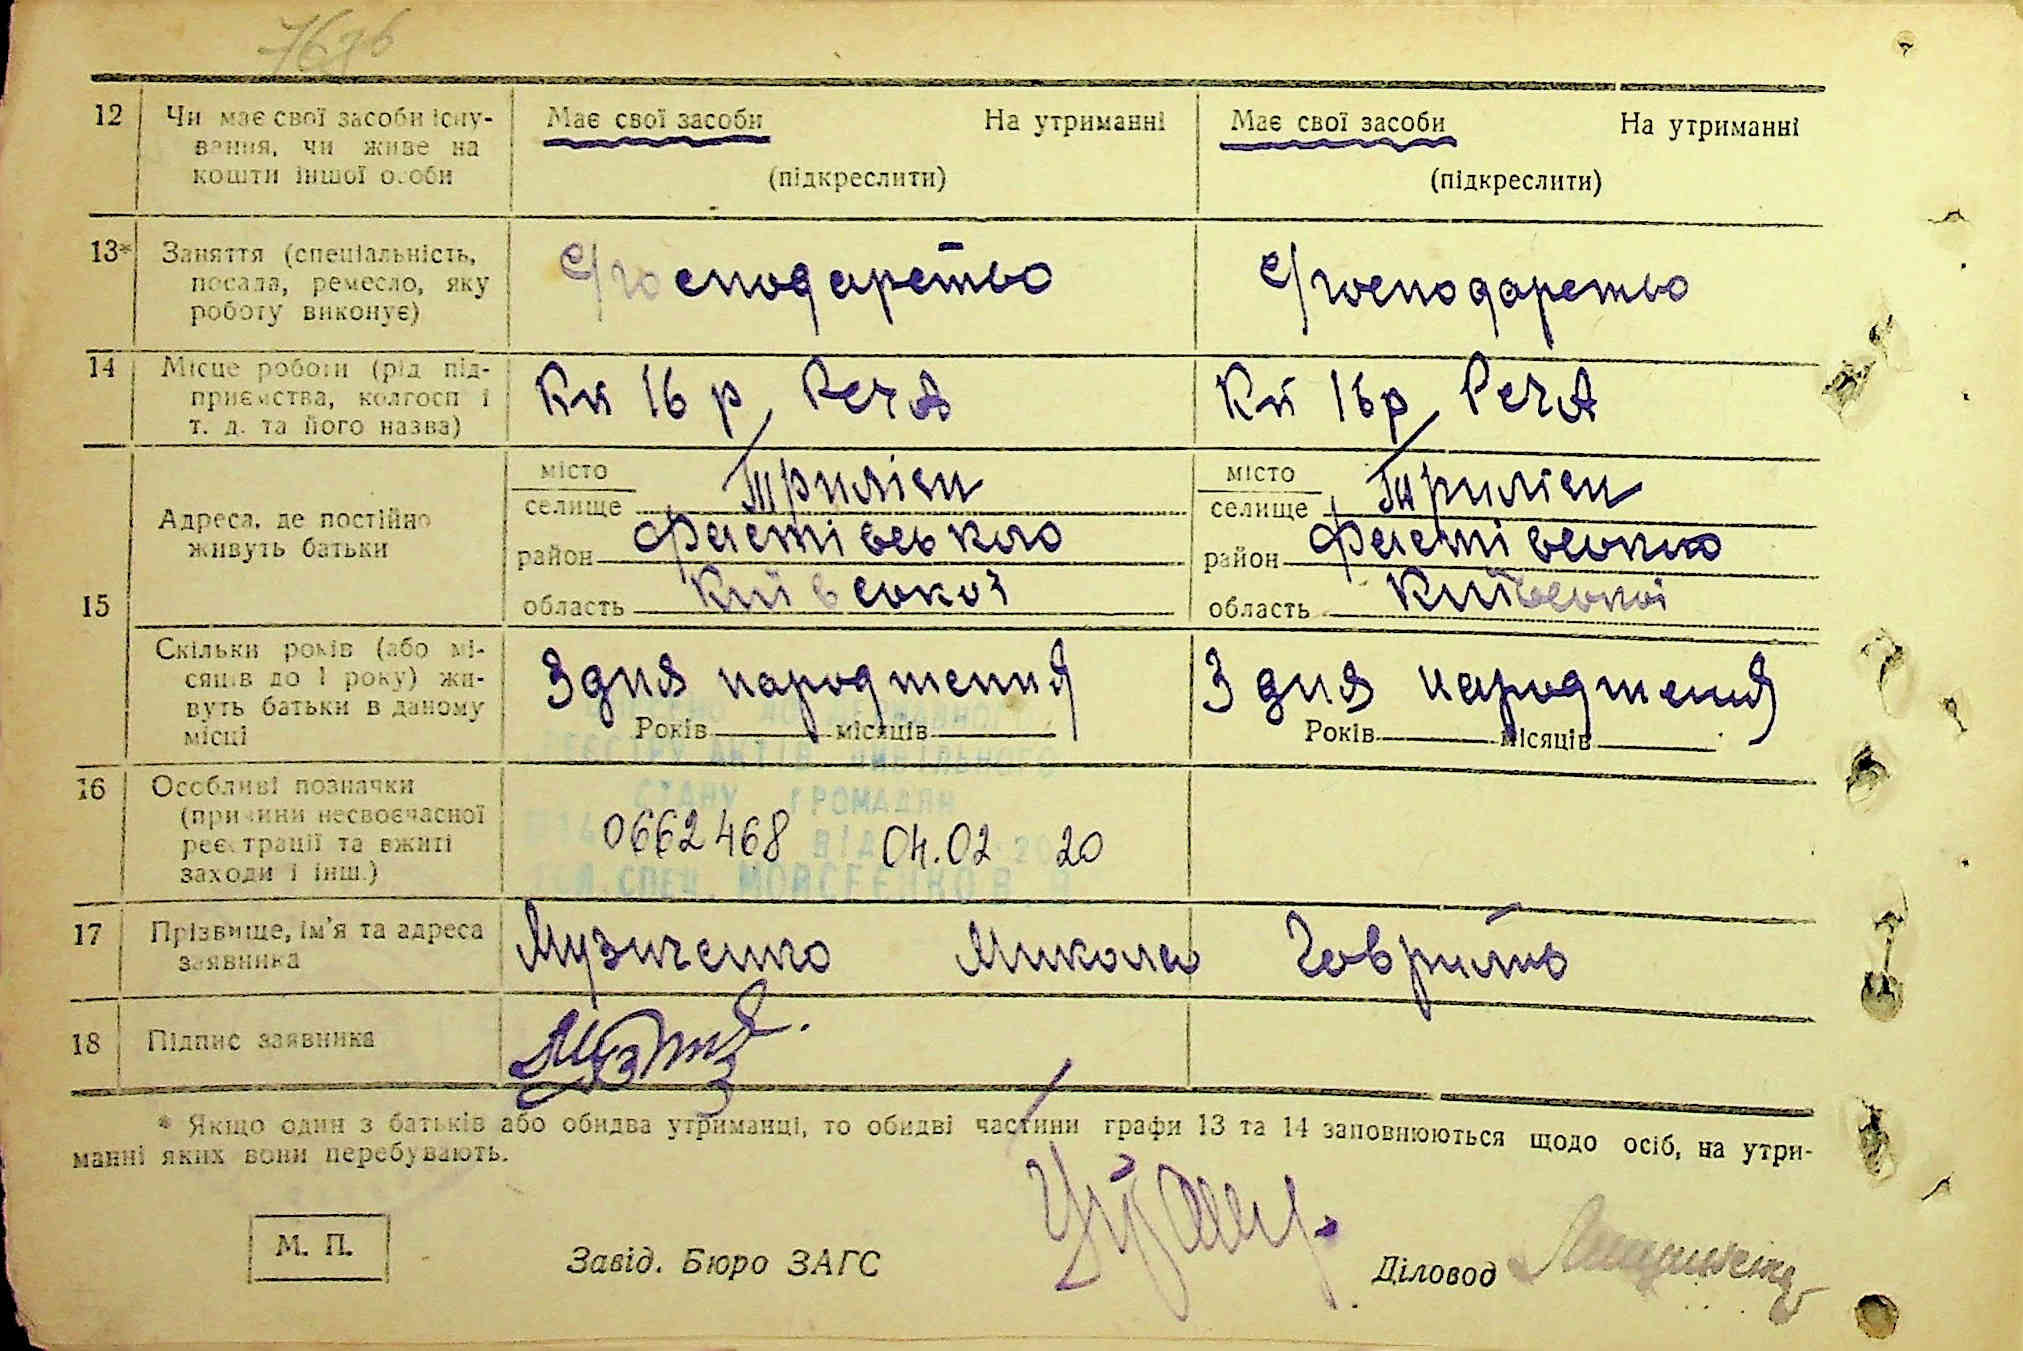 7636
12 Чи має свої засоби існу- Має свої засоби На утриманні Має свої засоби На утриманні
вання, чи живе на
кошти іншої особи (підкреслити) (підкреслити)
13* Заняття (спеціальність, с/господарство с/господарство
посада, ремесло, яку
роботу виконує)
14 Місце роботи (рід під- Кп 16 р. РСЧА Кп 16 р. РСЧА
приємства, колгосп і
т. д. та його назва)
15 Адреса, де постійно місто місто
живуть батьки селище Триліси селище Триліси
район Фастівського район Фастівського
область Київської область Київської
Скільки років (або мі- З дня народження З дня народження
сяців до 1 року) жи- Років місяців Років місяців
вуть батьки в даному
місці
ВНЕСЕНО ДО ДЕРЖАВНОГО
РЕЄСТРУ АКТІВ ЦИВІЛЬНОГО
СТАНУ ГРОМАДЯН
16 Особливі позначки
(причини несвоєчасної 0662468 ВІД 04.02 20
реєстрації та вжиті
заходи і інш.) СПЕЦ. МОЙСЕЄНКО В. В
17 Прізвище, ім'я та адреса Музиченко Микола Гаврило
заявника
18 Підпис заявника
* Якщо один з батьків або обидва утриманці, то обидві частини графи 13 та 14 заповнюються щодо осіб, на утри-
манні яких вони перебувають.
М. П. Завід. Бюро ЗАГС Діловод